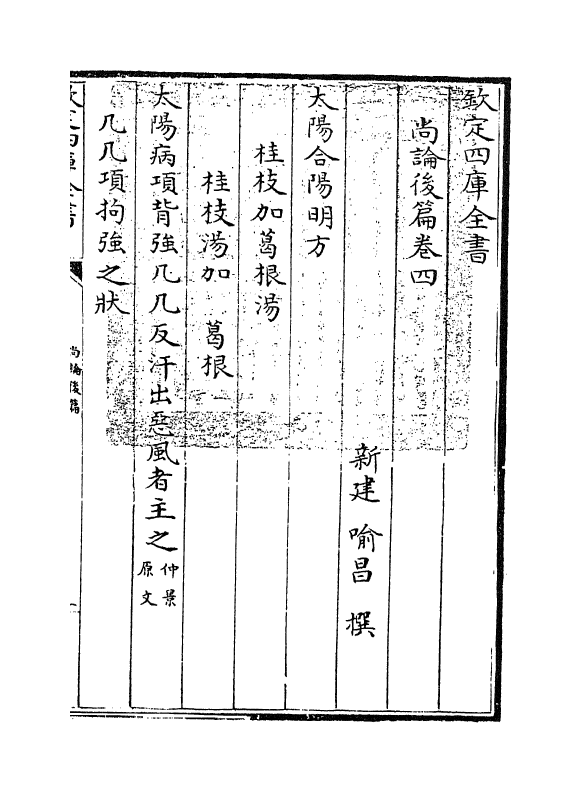 欽定四庫全書
尚論後篇卷四
新建 喻昌 撰
太陽合陽明方
桂枝加葛根湯
桂枝湯加 葛根
太陽病項背強几几反汗出惡風者主之仲景原文
几几項拘強之狀
尚論後篇